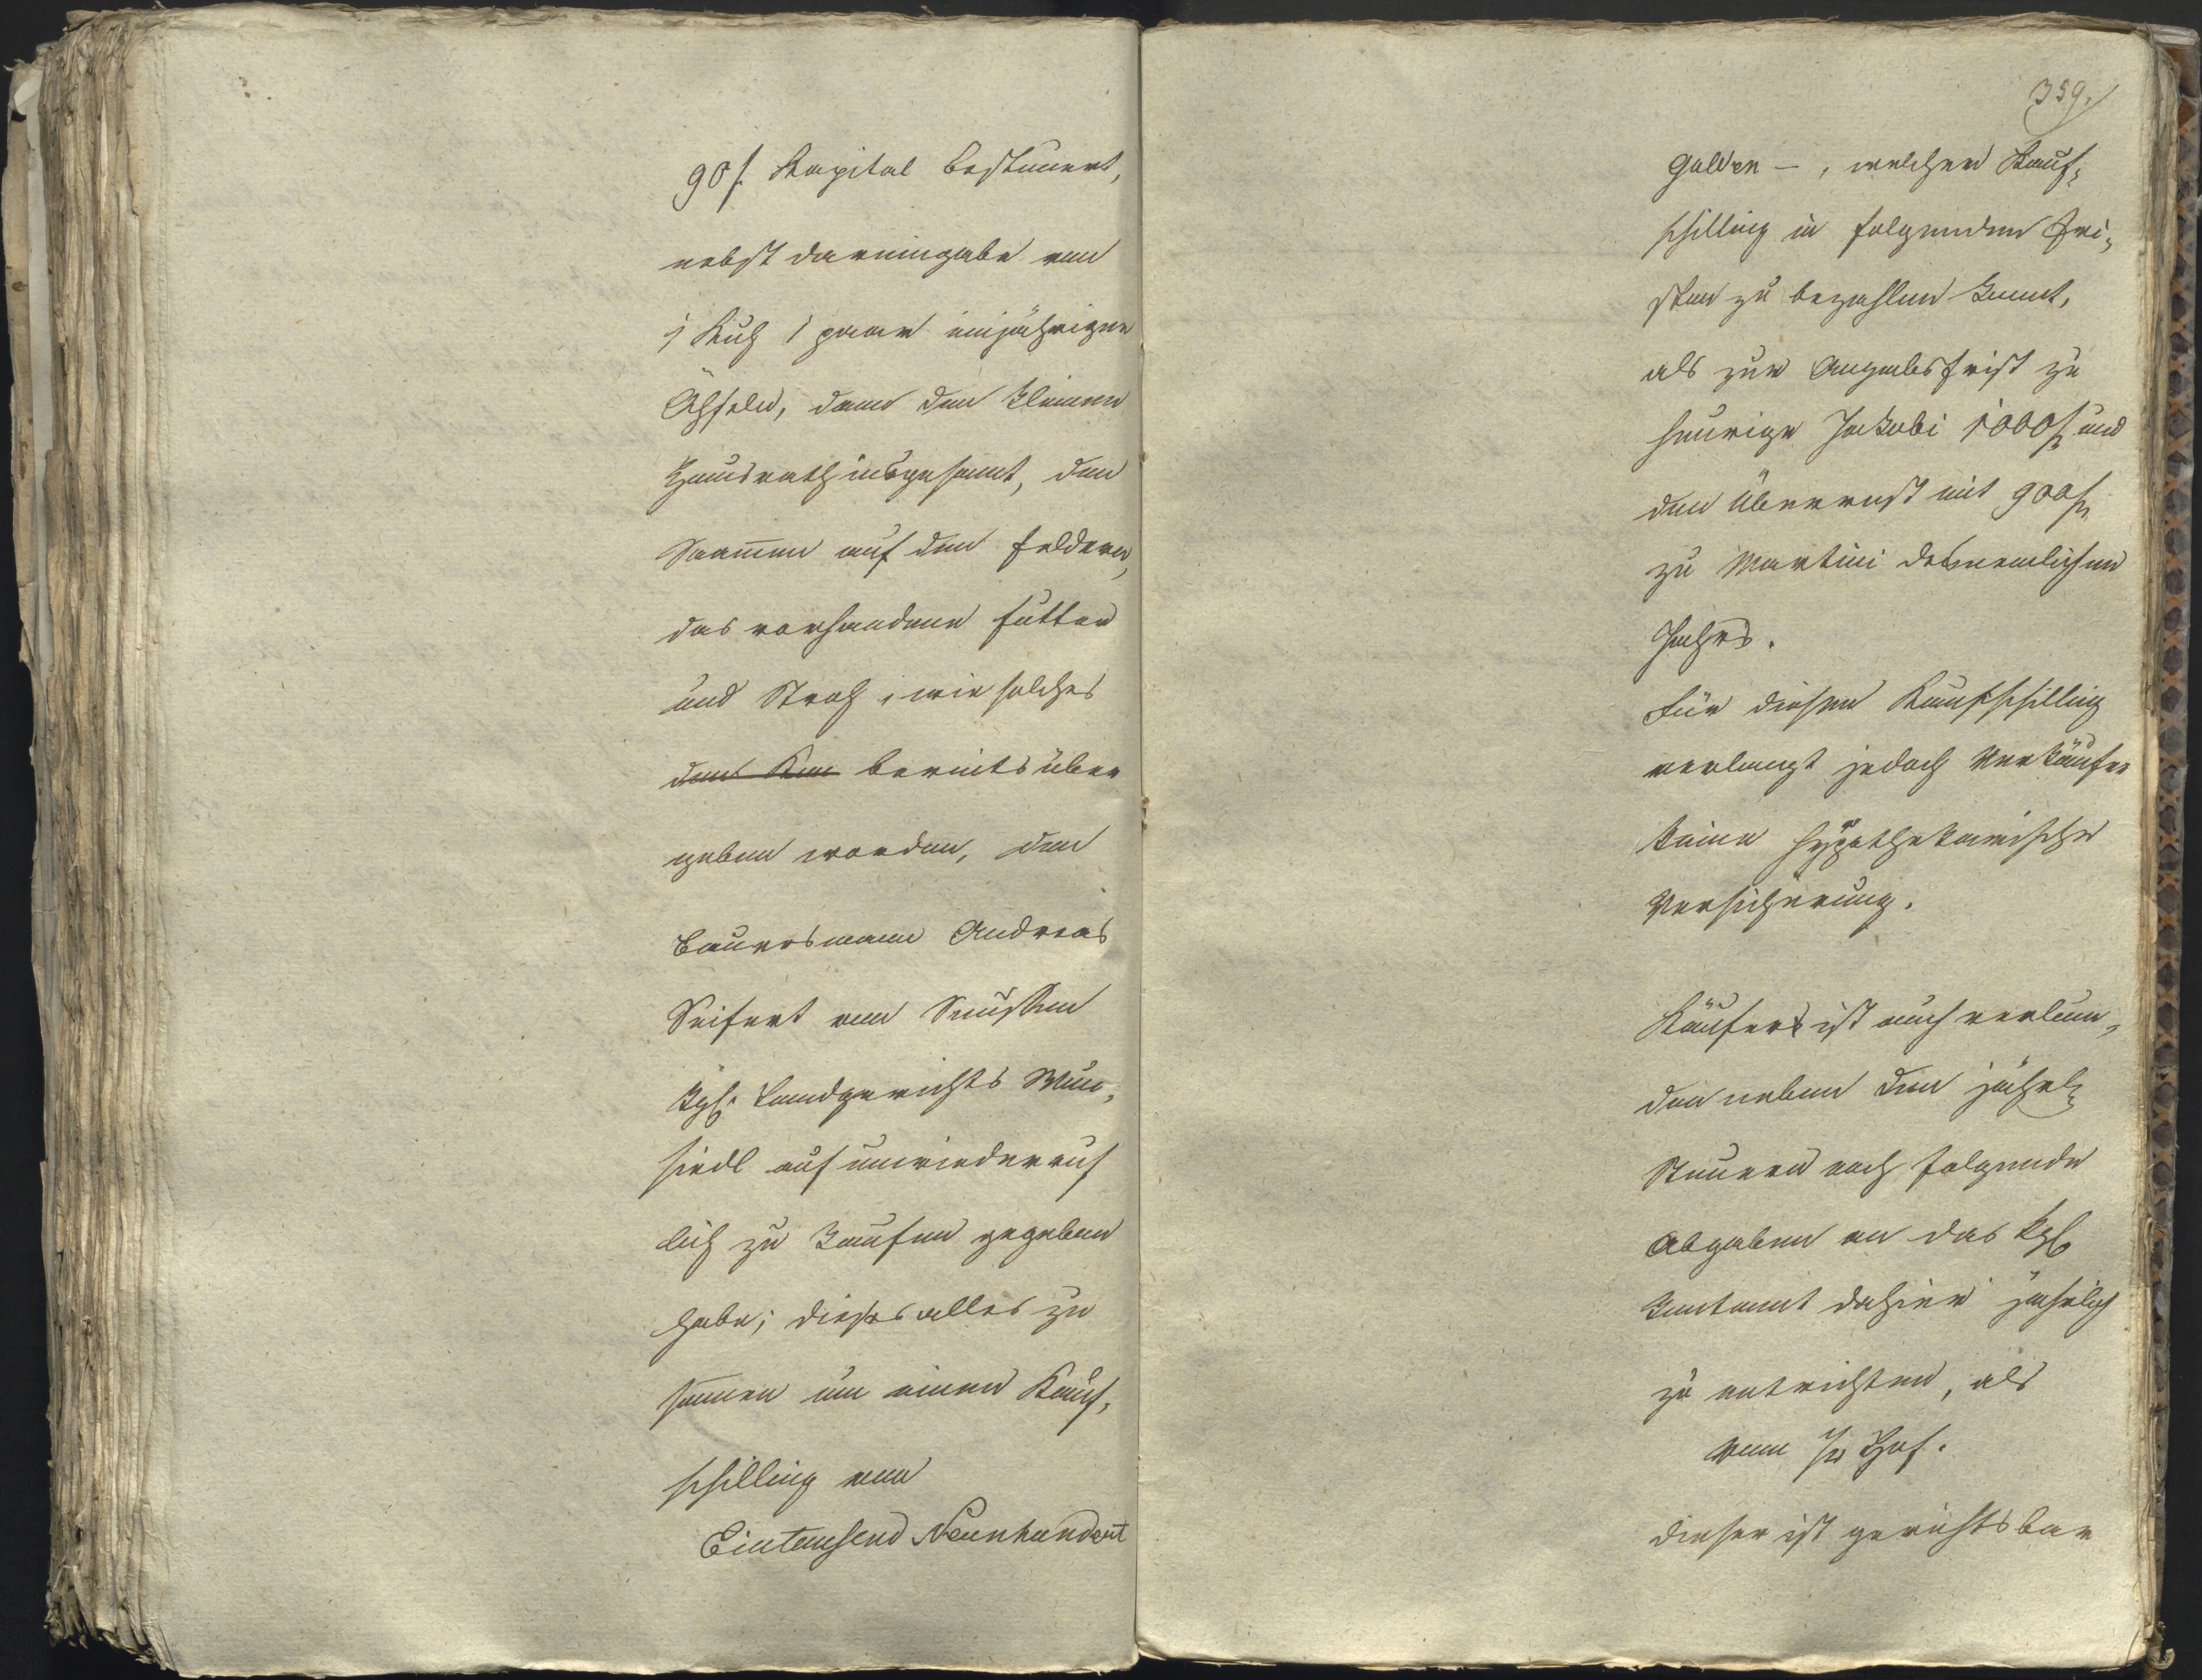 90 f. Kapital besteuert,
nebst dareingabe von
1 Kuh 1 paar einjährigen
Öchseln, dann den kleinen
Hausrath insgesamt, den
Saamen auf den Feldern,
das vorhandene Futter
und Stroh, wie solches
bereits über
geben worden, dem
Bauersmann Andreas
Seifert von Seussen
Kgl. Landgerichts Wun¬
siedl auf unwiederruf
lich zu kaufen gegeben
habe; dieses alles zu
samen um einen Kauf¬
schilling von
Eintausend Neunhundert
359.
Gulden –, welchen Kauf¬
schilling in folgenden Fri¬
sten zu bezahlen kommt,
als zur Angabsfrist zu
heurige Jackobi 1000 f. und
den Überrest mit 900 f.
zu Martini des nemlichen
Jahrs.
Für diesen Kaufschilling
verlangt jedoch Verkäufer
keine hypothekarische
Versicherung.
Käufer ist auch verbun¬
den neben den jährl.
Steuern noch folgende
Abgaben an das kgl.
Rentamt dahier jährlich
zu entrichten, als
vom Hof.
dieser ist gerichtsbar